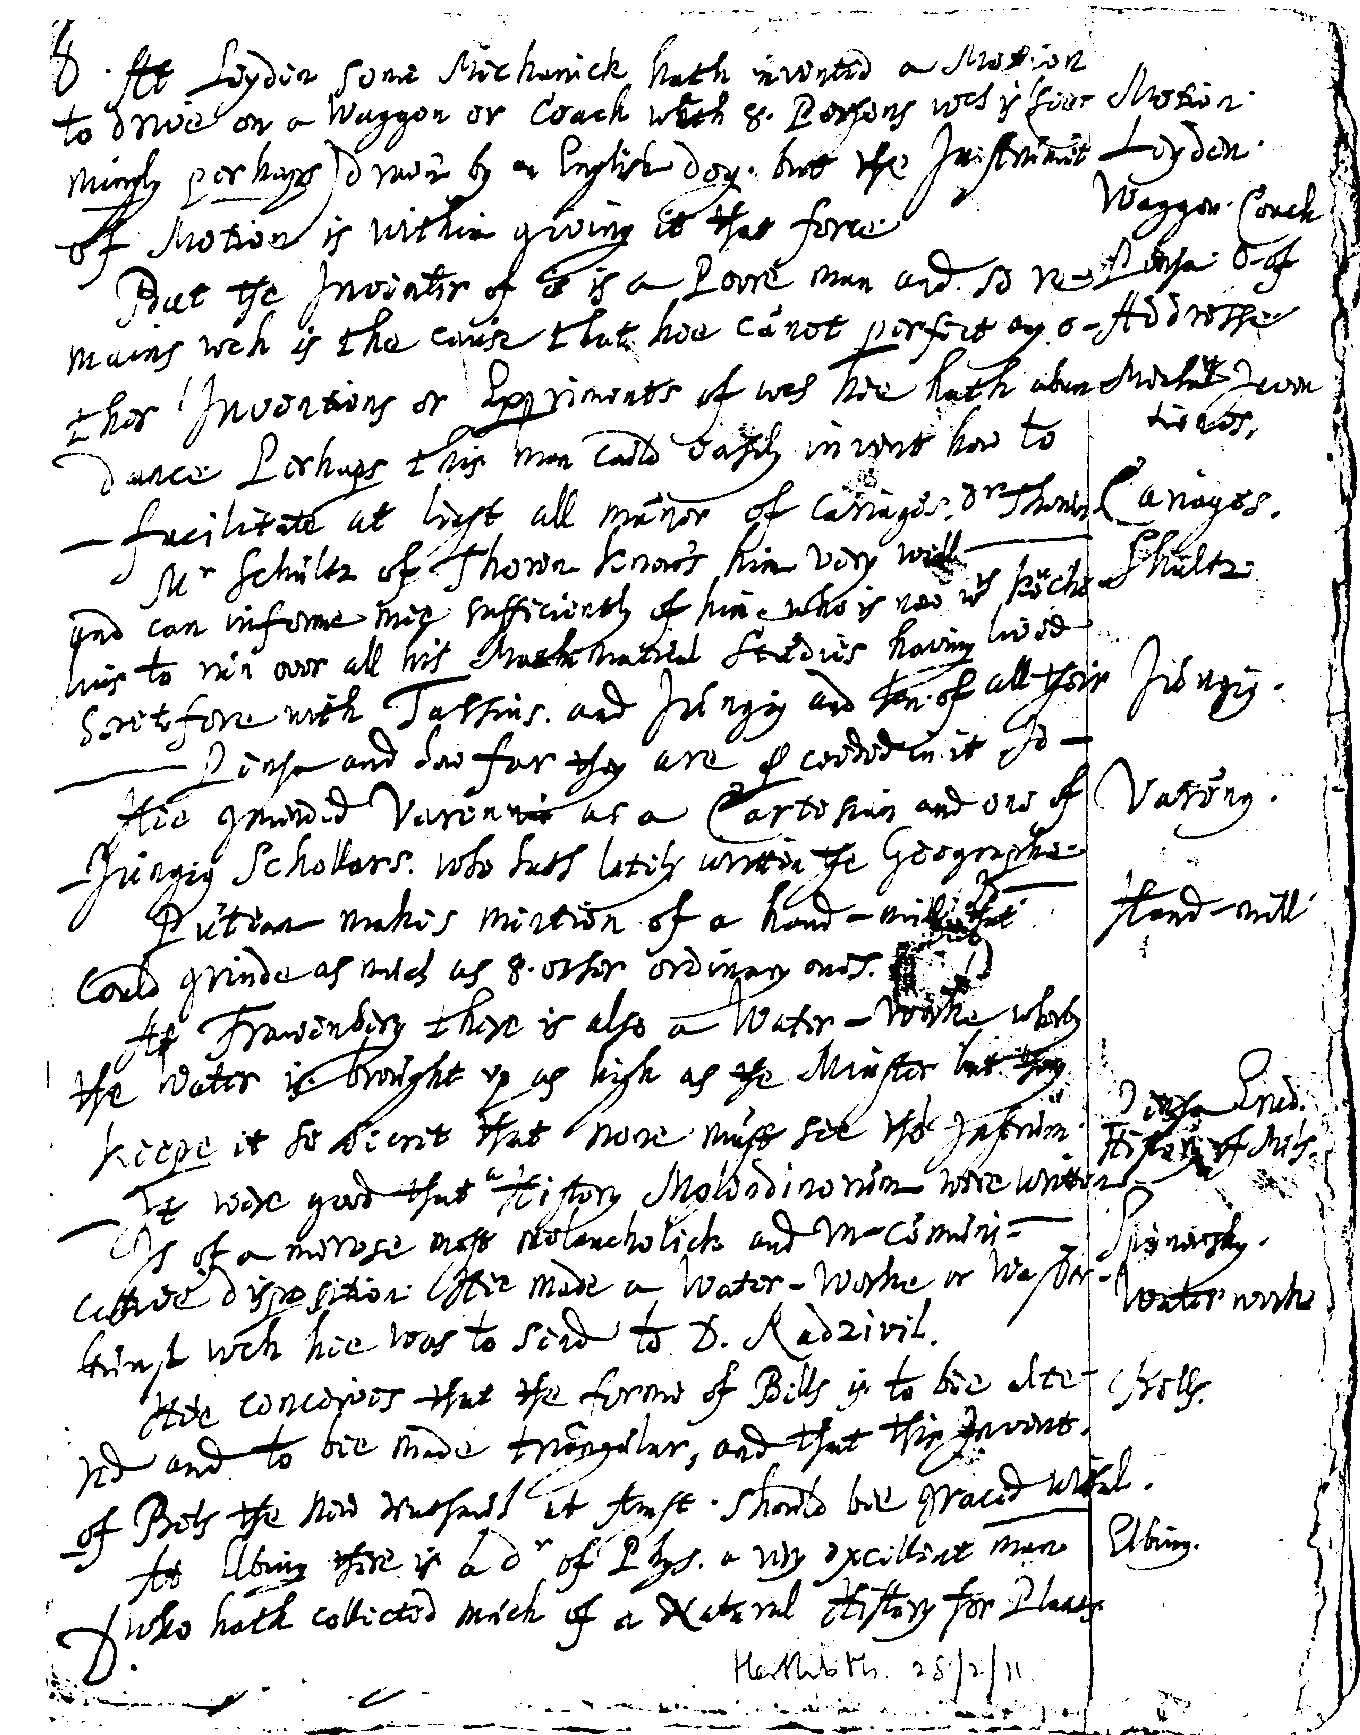 8. At Leyden some Mechanick hath invented a Motion
to drive on a Waggon or Coach with 8. Persons wch is (see-
mingly perhaps) drawen by an English dog. but the Instrument
of Motion is within giving it that force
But the Inventer of it is a Poore man and so re-
mains wch is the cause that hee cānot perfect any o-
ther Inventions or Experiments of wch hee hath abun
dance Perhaps this man could easily invent how to
facilitate at least all māner of cariages. Dr
Mr Schultz of Thoren knows him very well
and can informe mee sufficiently of him who is now
to run over all his Mathematical Studies having lived
heretofore with Tassius. and Jungig and of all their
and how far they are in it
Hee com̄ended Varenius as a Cartesian and one of
Jungig Schollars. who hath lately written the Geographie
Putean makes mention of a hand-mill that
could grinde as much as 8. other ordinary ones.
At Frawenburg there is also a Water-Worke wherby
the water is brought up as high as the Minster but they
keepe it so secret that none must see the Instrum.
It were good that a History Molendinorum were written
Is of a morose most melancholick and in-com̄uni-
cative disposition Hee made a Water-Worke or Wasser-
kunst wch hee was to send to D. Radzivil.
Hee conceives that the forme of Bells is to bee alte-
red and to bee made triangular, and that this Invent.
of Bels the new at should bee graced
At Elbing there is a Dr of Phys. a very excellent man
who hath collected much of a Natural History for Plants
D.
Motion.
Leyden.
Waggon. Coach
of
Addresse
Inven
tiones.
Cariages.
Shultz
Jungig.
Vareng.
Hand-mill
Erud.
History of Mils.
Water worke
Bells.
Elbing.
28/2/11